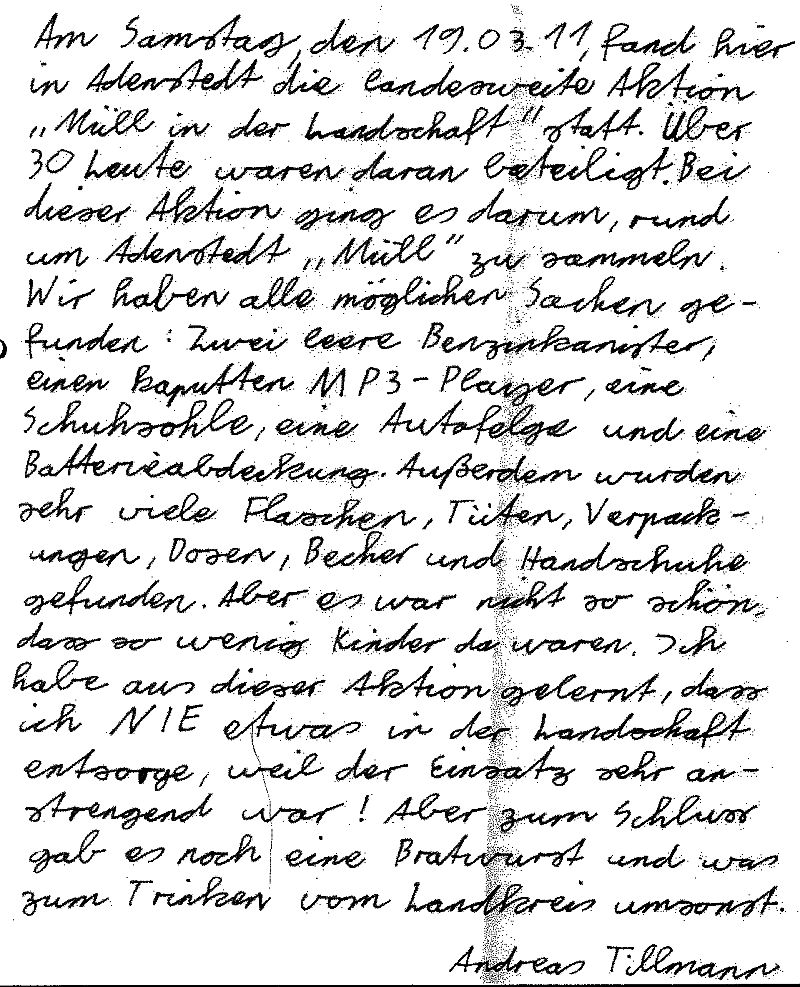 Am Samstag, den 19.03.11, fand hier
in Adenstedt die landesweite Aktion
„Müll in der Landschaft" statt. Über
30 Leute waren daran beteiligt. Bei
dieser Aktion ging es darum, rund
um Adenstedt „Müll" zu sammeln.
Wir haben alle möglichen Sachen ge-
funden: Zwei leere Benzinkanister,
einen kaputten MP3-Player, eine
Schuhsohle, eine Autofelge und eine
Batterieabdeckung. Außerdem wurden
sehr viele Flaschen, Tüten, Verpack-
ungen, Dosen, Becher und Handschuhe
gefunden. Aber es war nicht so schön,
dass so wenig Kinder da waren. Ich
habe aus dieser Aktion gelernt, dass
ich NIE etwas in der Landschaft
entsorge, weil der Einsatz sehr an-
strengend war! Aber zum Schluss
gab es noch eine Bratwurst und was
zum Trinken vom Landkreis umsonst.
Andreas Tillmann